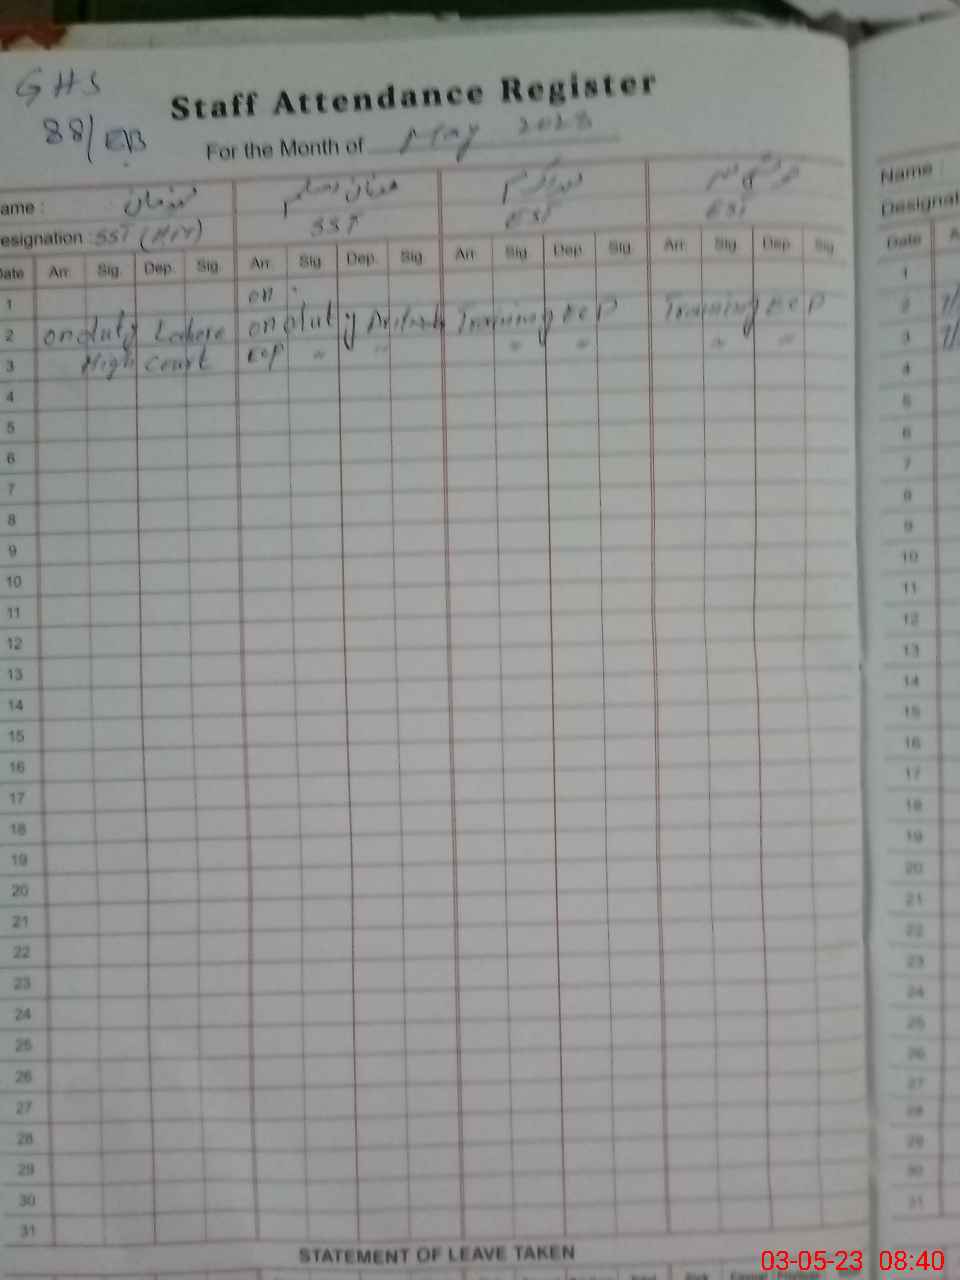 GHS
88/EB
Staff Attendance Register
For the Month of May 2023
ame :
esignation : SST SST EST EST
Date Arr. Sig. Dep. Sig. Arr. Sig. Dep. Sig. Arr. Sig. Dep. Sig. Arr. Sig. Dep. Sig.
1 on
2 on duty Lahore on duty Training EEP Training EEP
3 High Court EEP " " " " " "
4
5
6
7
8
9
10
11
12
13
14
15
16
17
18
19
20
21
22
23
24
25
26
27
28
29
30
31
STATEMENT OF LEAVE TAKEN
Name :
Designat
Date A
1
2
3
4
5
6
7
8
9
10
11
12
13
14
15
16
17
18
19
20
21
22
23
24
25
26
27
28
29
30
31
03-05-23 08:40